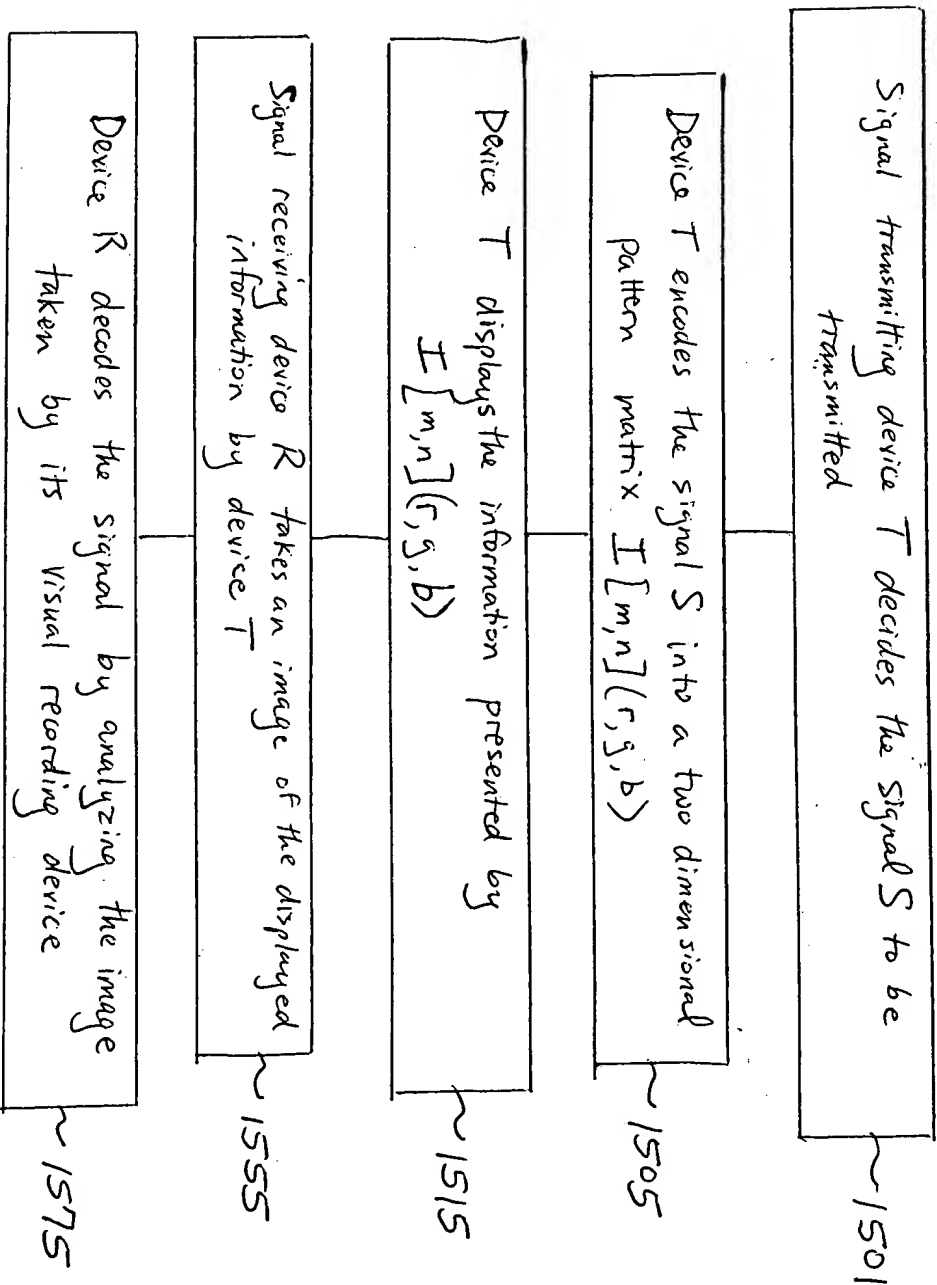 Signal transmitting device T decides the Signal S to be
transmitted
~1501
Device T encodes the signal S into a two dimensional
pattern matrix I [m,n] (r, g, b)
~1505
Device T displays the information presented by
I [m,n] (r, g, b)
~1515
Signal receiving device R takes an image of the displayed
information by device T
~1555
Device R decodes the signal by analyzing the image
taken by its visual recording device
~1575